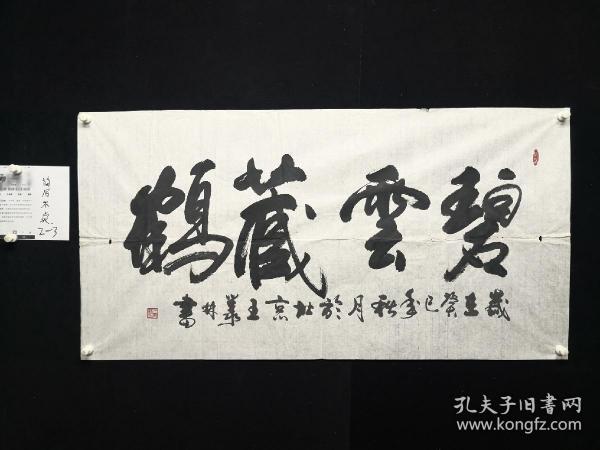 碧雲藏鶴
歲在癸巳年秋月於北京王業林書
2-3
孔夫子旧書网
www.kongfz.com